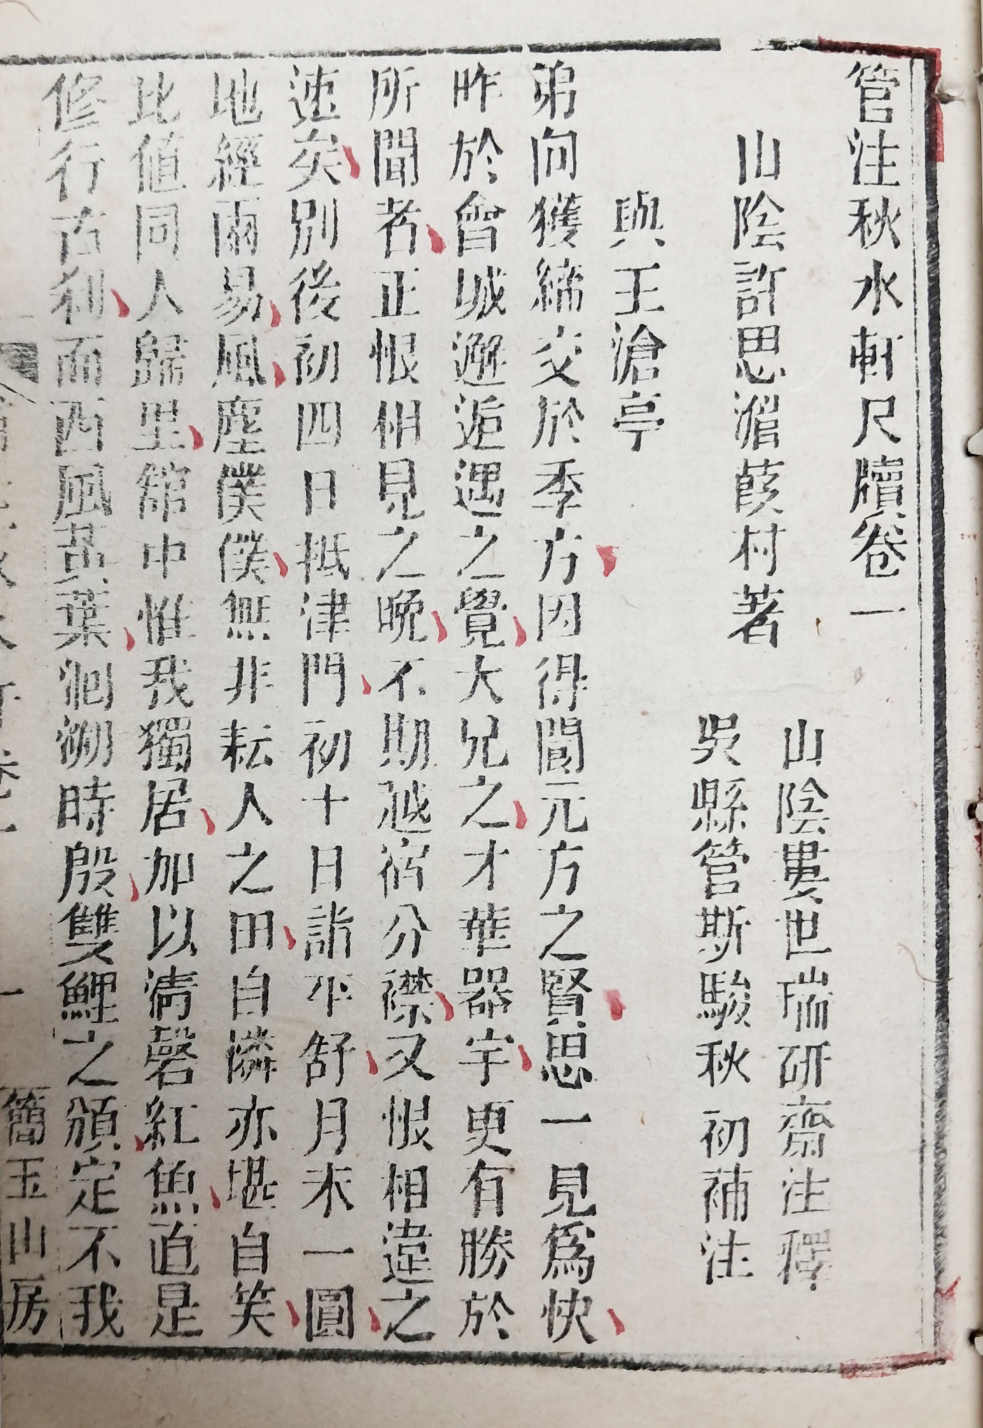 管注秋水軒尺牘卷一
山陰婁世瑞研齋注釋
山陰許思湄葭村著
吳縣管斯駿秋初補注
與王滄亭
弟向獲締交於季方因得聞元方之賢思一見爲快
昨於曾城邂逅遇之覺大兄之才華器宇更有勝於
所聞者正恨相見之晚不期越宿分襟又恨相違之
速矣別後初四日抵津門初十日詣平舒月未一圓
地經兩易風塵僕僕無非耘人之田自憐亦堪自笑
比値同人歸里舘中惟我獨居加以淸磬紅魚直是
修行古刹而西風墮葉洄溯時殷雙鯉之頒定不我
水軒卷一
一
簡玉山房